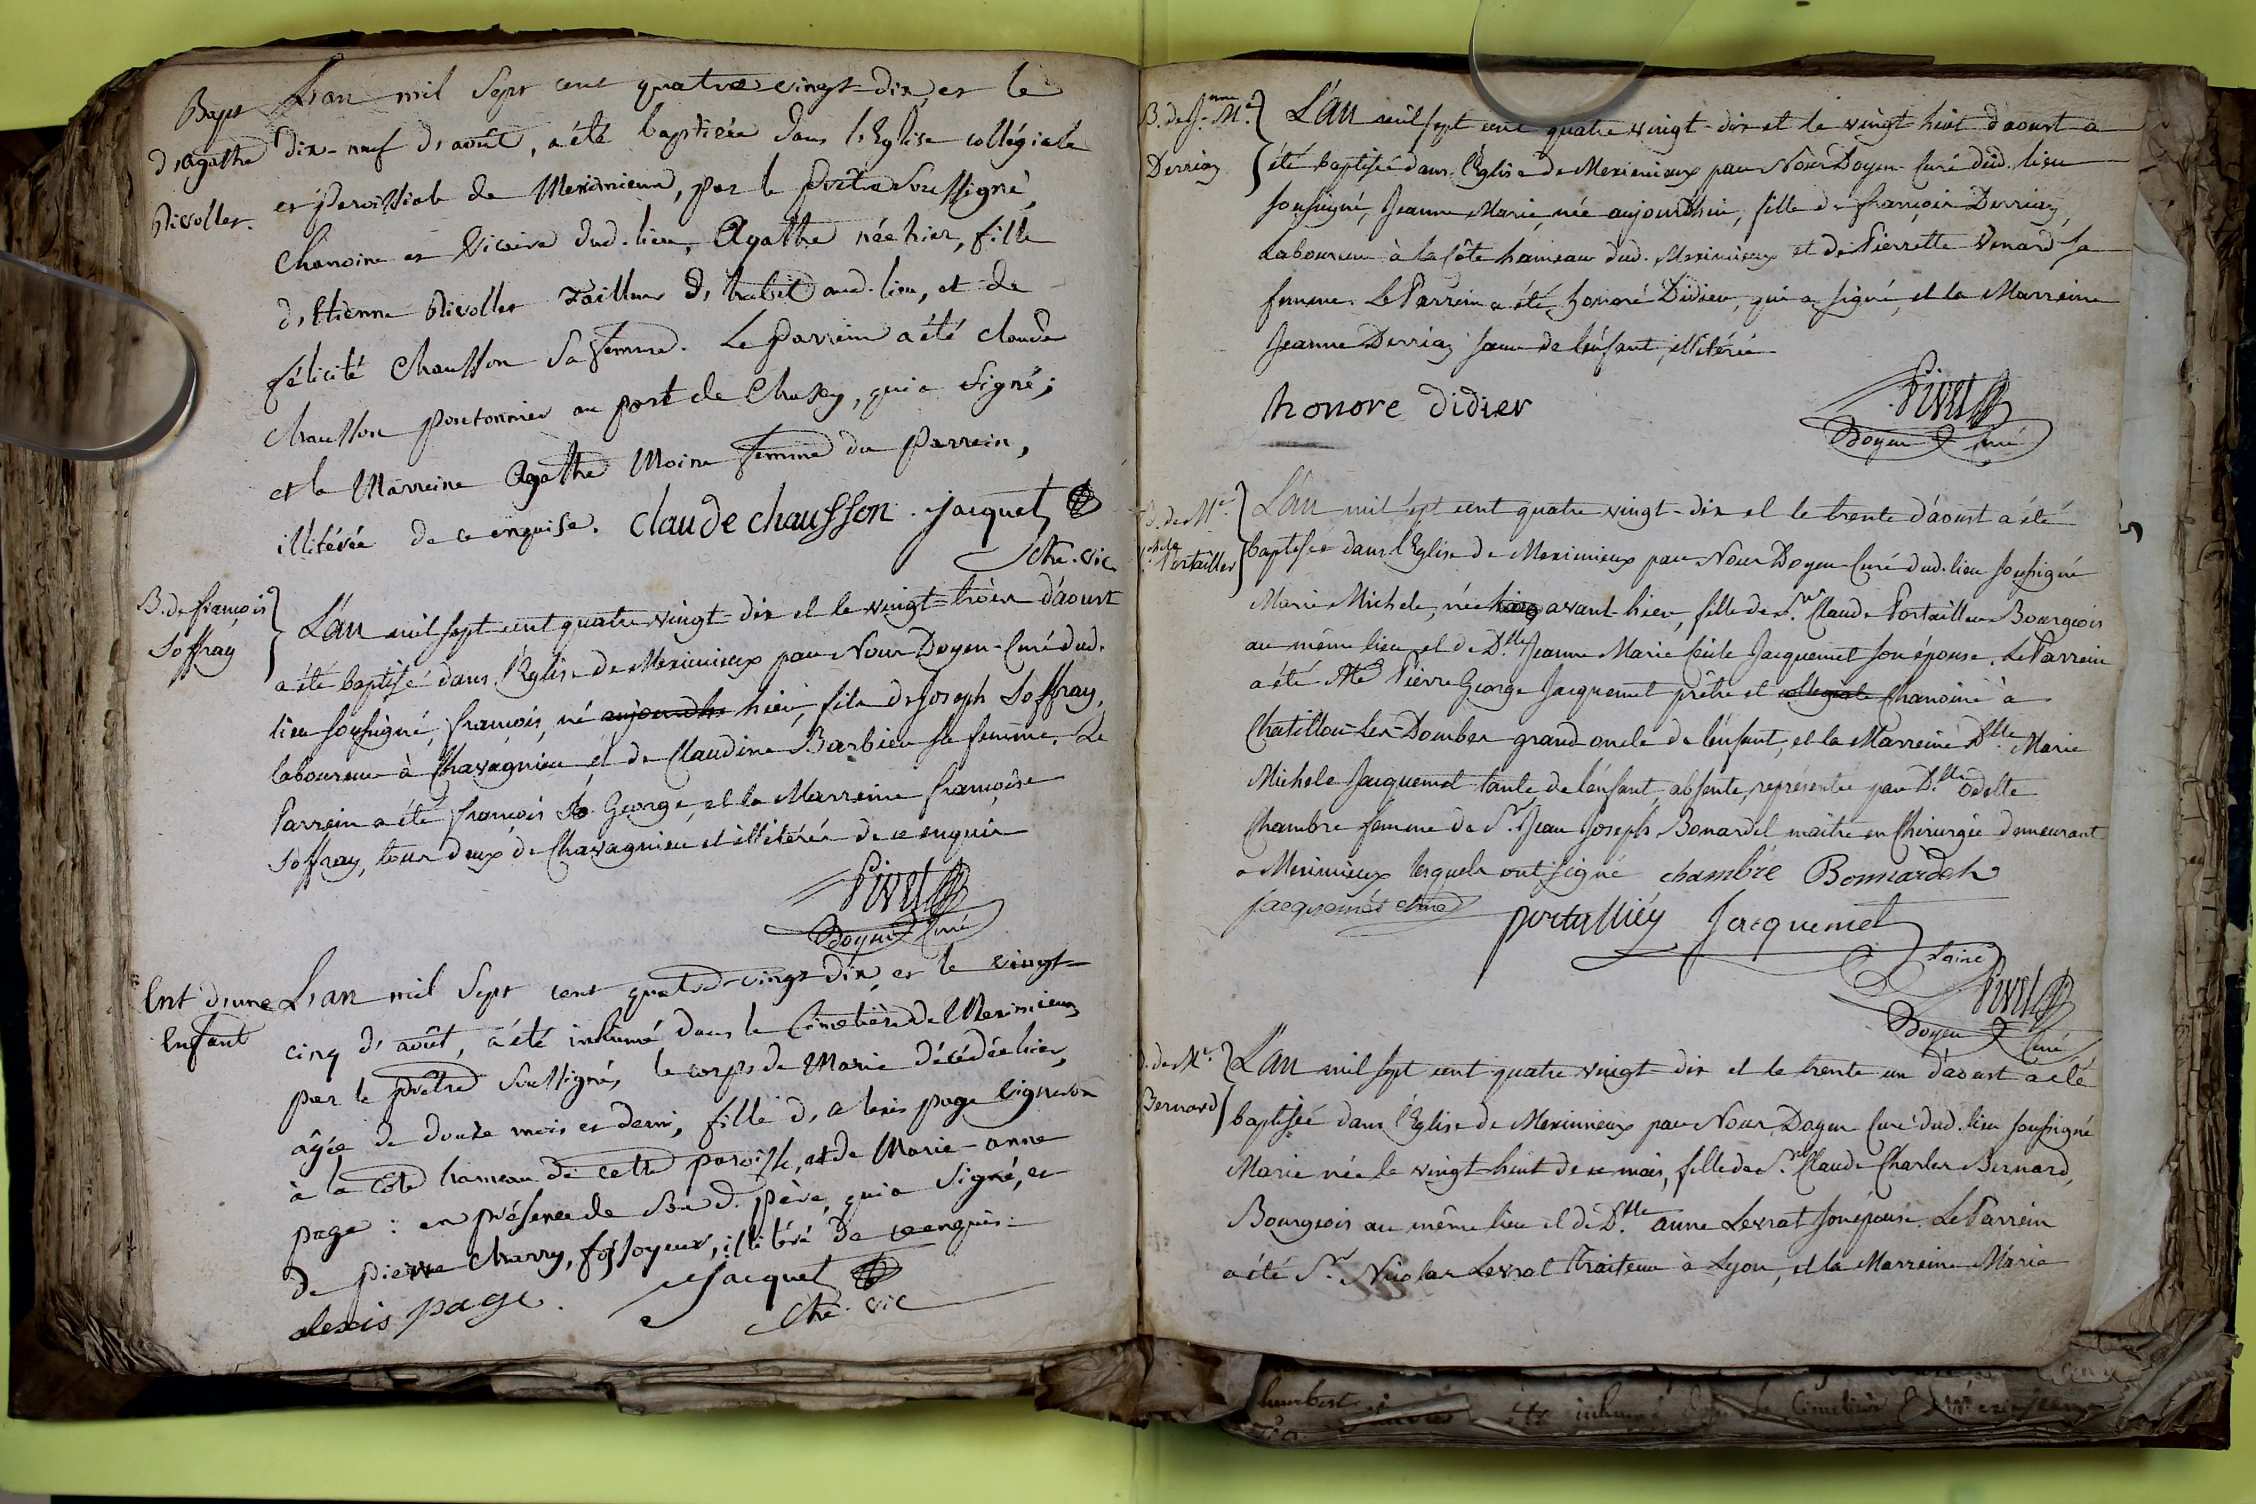 Bapt
d'Agathe
Rivollet.
L'an mil Sept cent quatre vingt-dix, et le
dix-neuf d'août, a été baptisée dans l'Eglise collégiale
et paroissiale de Meximieux, par le prêtre soussigné,
chanoine et vicaire dud. lieu, Agathe née hier, fille
d'Etienne Rivollet Tailleur d'habit aud. lieu, et de
félicité Chausson sa femme. Le parrein a été claude
chausson pontonnier au port de Chasey, qui a signé;
et la Marreine Agathe Moine femme du parrein,
illitérée de ce enquise. claude chausson. jacquet
che. vic
B. de françois
Soffray
L'an mil sept cent quatre vingt-dix et le vingt-trois d'aoust
a été baptisé dans l'Eglise de Meximieux par Nous Doyen-Curé dud.
lieu soussigné, françois, né aujourdhu hier, fils de Joseph Soffray,
laboureur à Chavagnieu et de Claudine Barbier sa femme. Le
Parrein a été françois St George, et la Marreine françoise
Soffray, tous deux de Chavagnieu et illitérés de ce enquis
Pivet
Doyen Curé
Ent d'une
Enfant
L'an mil Sept cent quatre-vingt dix, et le vingt-
cinq d'août, a été inhumé dans le Cimetière de Meximieux
par le prêtre soussigné, le corps de Marie décédée hier,
âgée de douze mois et demi, fille d'alexis page vigneron
à la Côte hameau de cette paroisse, et de Marie-anne
page : en présence de son d. père, qui a signé, et
de pierre charry, fossoyeur, illitéré de ce enquis.
alexis page. Jacquet
che. vic
B. de Jnne Me.
Derriaz
L'an mil sept cent quatre vingt-dix et le vingt huit d'aoust a
été baptisée dans l'Eglise de Meximieux par Nous Doyen-Curé dud. lieu
soussigné, Jeanne Marie, née aujourdhui, fille de françois Derriaz,
Laboureur à la Côte hameau dud. Meximieux et de Pierrette Venard sa
femme. Le Parrein a été honoré Didier, qui a signé, et la Marreine
Jeanne Derriaz soeur de l'enfant, illitérée
honore didier
Pivet
Doyen Curé
B. de Me
Portallier
L'an mil sept cent quatre vingt-dix et le trente d'aoust a été
baptisée dans l'Eglise de Meximieux par Nous Doyen-Curé dud. lieu soussigné
Marie Michele, née hier avant-hier, fille de Sr. Claude Portallier Bourgeois
au même lieu et de Dlle Jeanne Marie Cécile Jacquemet son épouse. Le Parrein
a été Me Pierre George Jacquemet prêtre et collegiale Chanoine à
Chatillon-Les-Dombes grand oncle de l'enfant, et la Marreine Dlle. Marie
Michele Jacquemet tante de l'enfant, absente, représentée par Dlle. Odette
Chambre femme de Sr. Jean Joseph Bonardel maître en Chirurgie demeurant
a Meximieux lesquels ont signé chambre Bonnardel
jacquemet portallier Jacquemet
Lainé
Pivet
Doyen Curé
B. de Me.
Bernard
L'an mil sept cent quatre vingt-dix et le trente un d'aoust a été
baptisée dans l'Eglise de Meximieux par Nous, Doyen Curé dud. lieu soussigné
Marie née le vingt-huit de ce mois, fille de Sr. Claude Charles Bernard,
Bourgeois au même lieu et de Dlle anne Levrat son épouse. Le Parrein
a été Sr. Nicolas Levrat Traiteur à Lyon, et la Marreine Marie
humbert
été inhumé dans le Cimetière